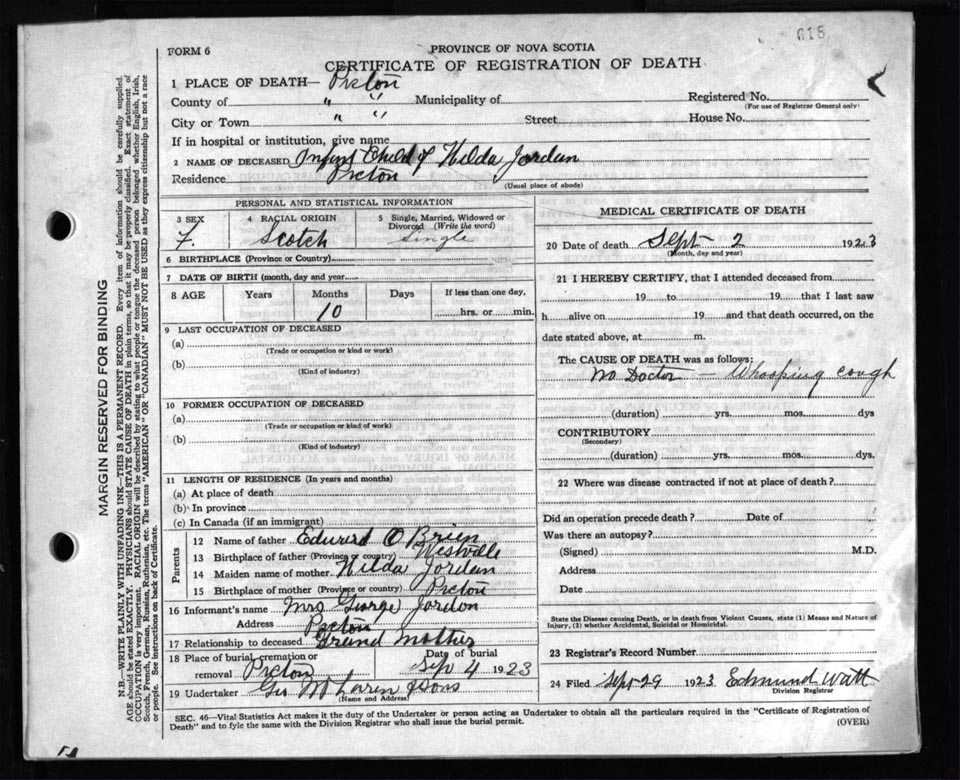 618
FORM 6
PROVINCE OF NOVA SCOTIA
CERTIFICATE OF REGISTRATION OF DEATH
1 PLACE OF DEATH— Pictou
County of " " Municipality of
Registered No.
(For use of Registrar General only)
City or Town " " Street
House No.
If in hospital or institution, give name
2 NAME OF DECEASED Infant Child of Hilda Jordan
Residence Pictou
(Usual place of abode)
PERSONAL AND STATISTICAL INFORMATION
3 SEX
F.
4 RACIAL ORIGIN
Scotch
5 Single, Married, Widowed or
Divorced (Write the word)
Single
6 BIRTHPLACE (Province or Country)
7 DATE OF BIRTH (month, day and year)
8 AGE
Years
Months
10
Days
If less than one day,
hrs. or min.
9 LAST OCCUPATION OF DECEASED
(a)
(Trade or occupation or kind or work)
(b)
(Kind of industry)
10 FORMER OCCUPATION OF DECEASED
(a)
(Trade or occupation or kind or work)
(b)
(Kind of industry)
11 LENGTH OF RESIDENCE (In years and months)
(a) At place of death
(b) In province
(c) In Canada (if an immigrant)
Parents
12 Name of father Edward O Brien
13 Birthplace of father (Province or country) Westville
14 Maiden name of mother Hilda Jordan
15 Birthplace of mother (Province or country) Pictou
16 Informant's name Mrs George Jordon
Address Pictou
17 Relationship to deceased Grand Mother
18 Place of burial, cremation or
removal Pictou
Date of burial
Sept 4 1923
19 Undertaker Geo McLaren & Sons
(Name and Address)
MEDICAL CERTIFICATE OF DEATH
20 Date of death Sept 2 1923
(Month, day and year)
21 I HEREBY CERTIFY, that I attended deceased from
19 to 19 that I last saw
h alive on 19 and that death occurred, on the
date stated above, at m.
The CAUSE OF DEATH was as follows:
No Doctor — Whooping cough
(duration) yrs. mos. dys
CONTRIBUTORY
(Secondary)
(duration) yrs. mos. dys.
22 Where was disease contracted if not at place of death?
Did an operation precede death? Date of
Was there an autopsy?
(Signed) M.D.
Address
Date
State the Disease causing Death, or in death from Violent Causes, state (1) Means and Nature of
Injury, (2) whether Accidental, Suicidal or Homicidal.
23 Registrar's Record Number
24 Filed Sept 29 1923 Edmund Watt
Division Registrar
SEC. 46—Vital Statistics Act makes it the duty of the Undertaker or person acting as Undertaker to obtain all the particulars required in the "Certificate of Registration of
Death" and to fyle the same with the Division Registrar who shall issue the burial permit.
(OVER)
MARGIN RESERVED FOR BINDING
N.B.—WRITE PLAINLY WITH UNFADING INK—THIS IS A PERMANENT RECORD. Every item of information should be carefully supplied.
AGE should be stated EXACTLY. PHYSICIANS should STATE CAUSE OF DEATH in plain terms, so that it may be properly classified. Exact statement of
OCCUPATION is very important. RACIAL ORIGIN will be described by stating to what people or tongue the deceased person belonged whether English, Irish,
Scotch, French, German, Russian, Ruthenian, etc. The terms "AMERICAN" OR "CANADIAN" MUST NOT BE USED as they express citizenship but not a race
or people. See instructions on back of Certificate.